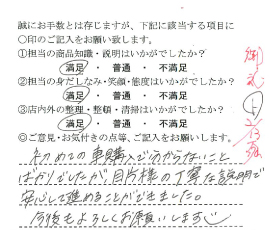 誠にお手数とは存じますが、下記に該当する項目に
○印のご記入をお願い致します。
①担当の商品知識・説明はいかがでしたか？
満足 ・ 普通 ・ 不満足
②担当の身だしなみ・笑顔・態度はいかがでしたか？
満足 ・ 普通 ・ 不満足
③店内外の整理・整頓・清掃はいかがでしたか？
満足 ・ 普通 ・ 不満足
◎ご意見・お気付きの点等、ご記入をお願いします。
初めての車購入で分からないこと
ばかりでしたが、目所様の丁寧な説明で
安心して進めることができました。
今後もよろしくお願いします